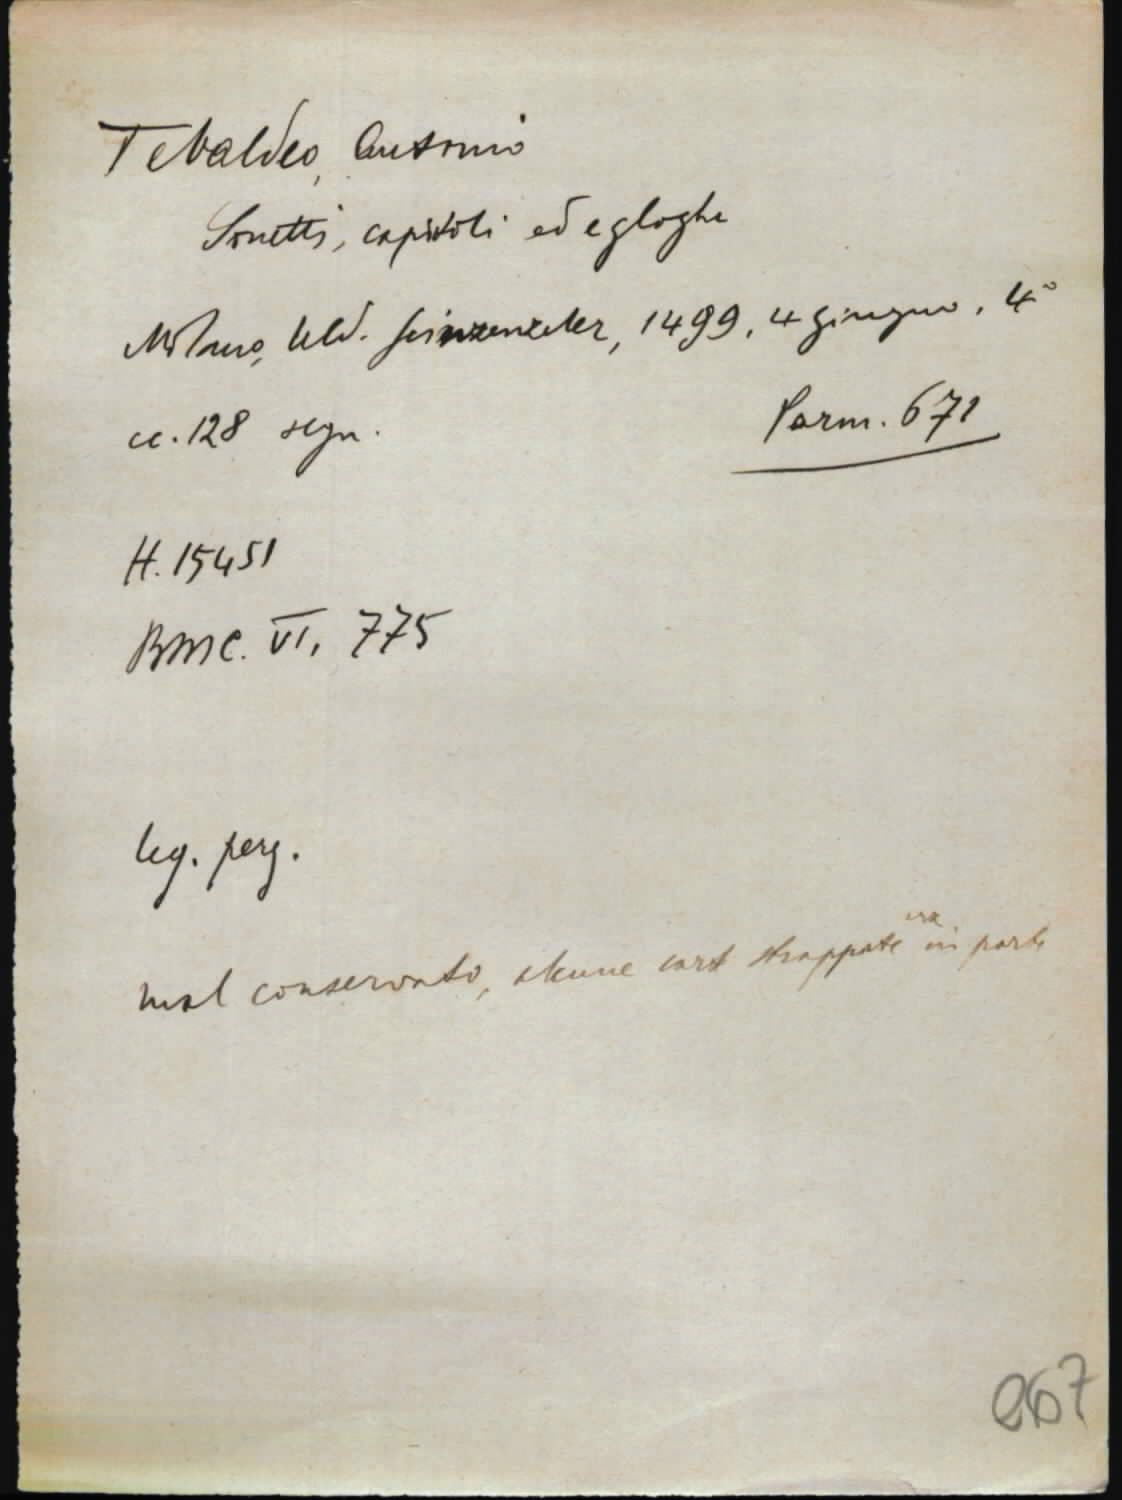 Tebaldeo, Antonio
Sonetti, capitoli ed egloghe
Milano, Uld. Scinzenzeler, 1499, 4 giugno. 4°
cc. 128 segn.
Parm. 671
H. 15451
BMC. VI, 775
leg. perg.
mal conservato, alcune carte strappate in parte
267